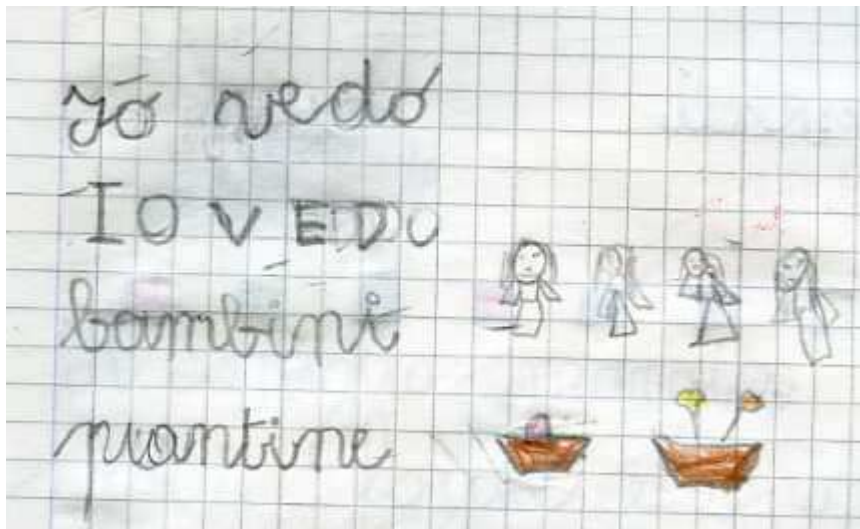 Io vedo
IO VEDO
bambini
piantine